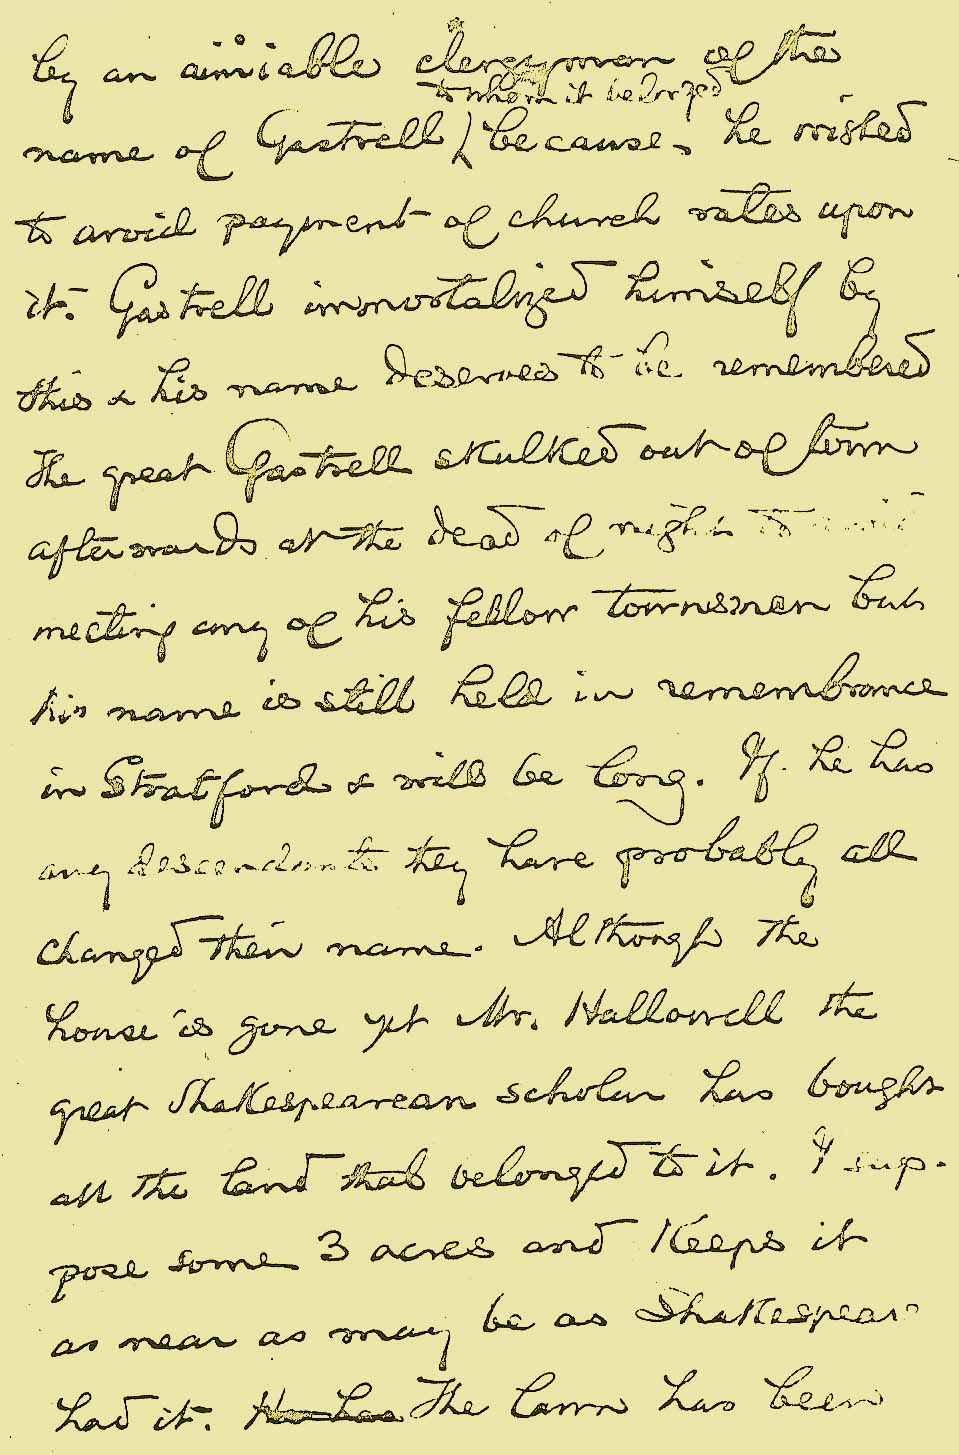 by an aimiable clergyman of the
to whom it belonged
name of Gastrell because he wished
to avoid payment of church rates upon
it. Gastrell immortalized himself by
this & his name deserves to be remembered
The great Gastrell skulked out of town
afterwards at the dead of night to avoid
meeting any of his fellow townsmen but
his name is still held in remembrance
in Stratford & will be long. If he has
any descendants they have probably all
changed their name. Although the
house is gone yet Mr. Hallowell the
great Shakespearean scholar has bought
all the land that belonged to it. I sup-
pose some 3 acres and keeps it
as near as may be as Shakespear
had it. He has The lawn has been